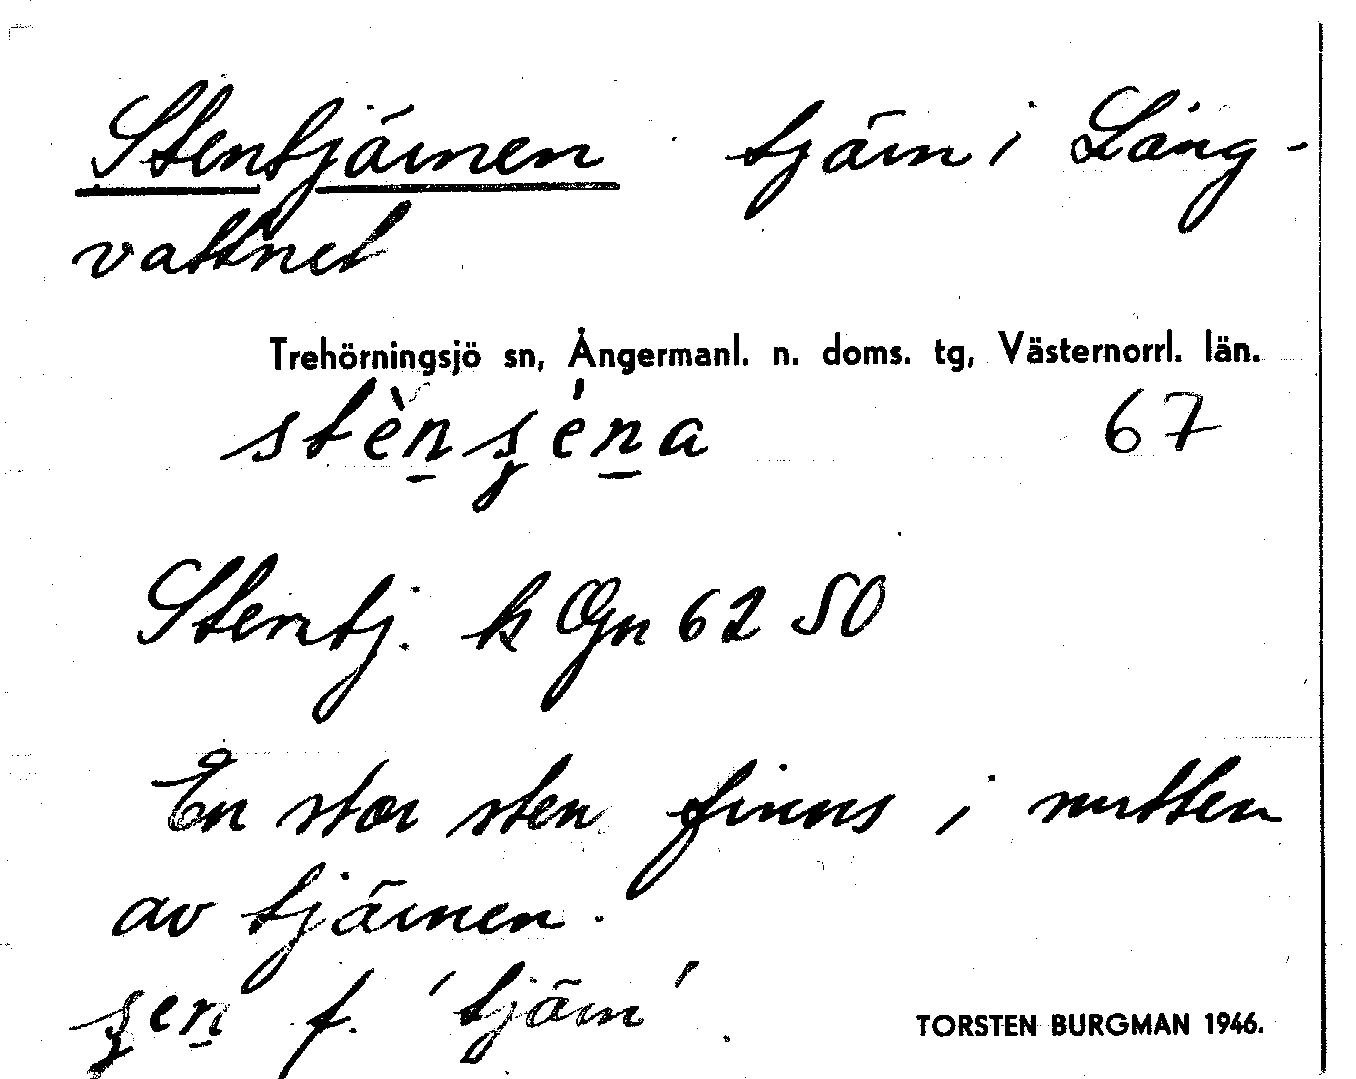 Stentjärnen tjärn i Lång-
vattnet
Trehörningsjö sn, Ångermanl. n. doms. tg, Västernorrl. län.
67
Stentj. k Gn 62 50
En stor sten finns i mitten
av tjärnen.
f. 'tjärn'
TORSTEN BURGMAN 1946.